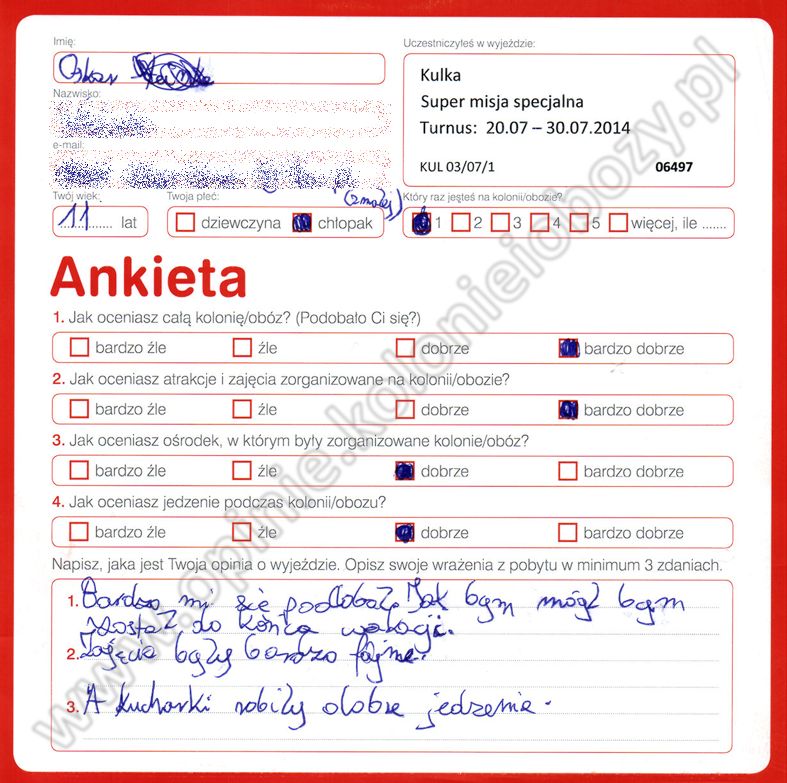 Imię:
Oskar
Uczestniczyłeś w wyjeździe:
Kulka
Super misja specjalna
Turnus: 20.07 – 30.07.2014
KUL 03/07/1 06497
Nazwisko:
e-mail:
(z małej)
Twój wiek: Twoja płeć: Który raz jesteś na kolonii/obozie?
11 lat dziewczyna chłopak 1 2 3 4 5 więcej, ile .......
Ankieta
1. Jak oceniasz całą kolonię/obóz? (Podobało Ci się?)
bardzo źle źle dobrze bardzo dobrze
2. Jak oceniasz atrakcje i zajęcia zorganizowane na kolonii/obozie?
bardzo źle źle dobrze bardzo dobrze
3. Jak oceniasz ośrodek, w którym były zorganizowane kolonie/obóz?
bardzo źle źle dobrze bardzo dobrze
4. Jak oceniasz jedzenie podczas kolonii/obozu?
bardzo źle źle dobrze bardzo dobrze
Napisz, jaka jest Twoja opinia o wyjeździe. Opisz swoje wrażenia z pobytu w minimum 3 zdaniach.
1. Bardzo mi się podobało. Jak bym mógł bym
został do końca wakacji.
2. Zajęcia były bardzo fajne.
3. A kucharki robiły dobre jedzenie.
www.opinie.kolonieiobozy.pl